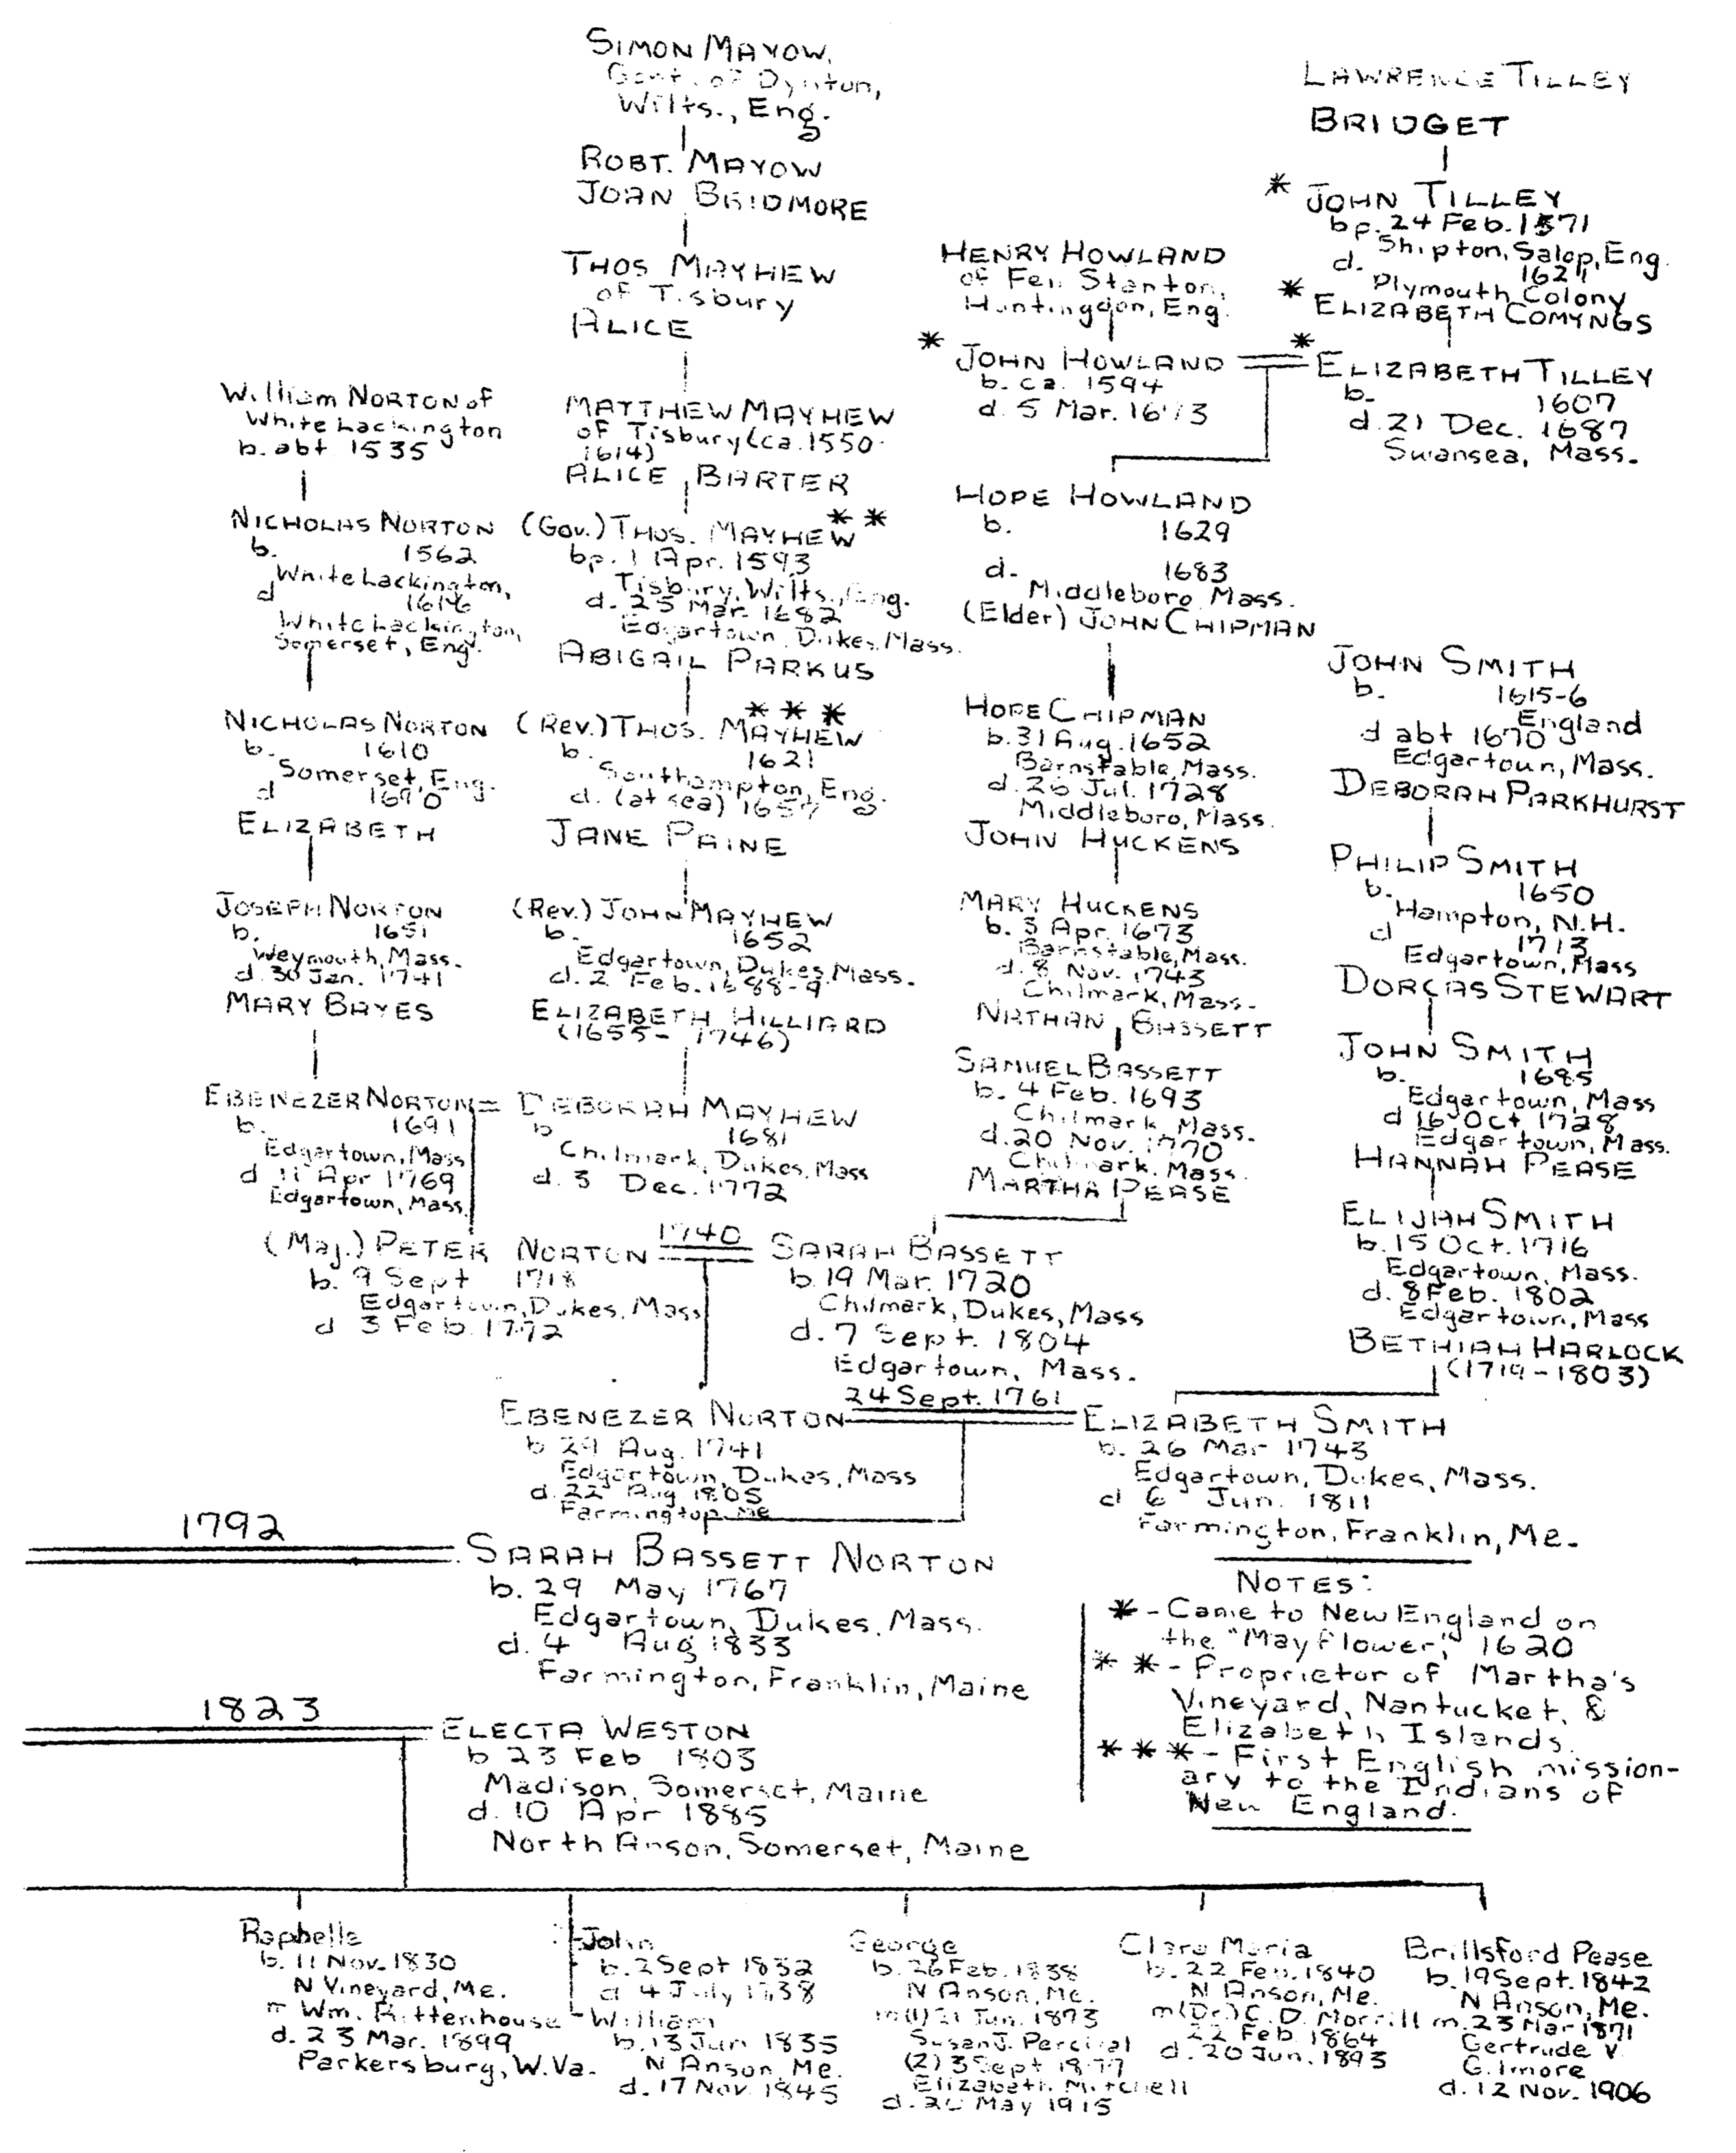 SIMON MAYOW,
Gent. of Dynton,
Wilts., Eng.
ROBT. MAYOW
JOAN BRIDMORE
THOS MAYHEW
of Tisbury
ALICE
MATTHEW MAYHEW
of Tisbury (ca. 1550-
1614)
ALICE BARTER
(Gov.) THOS. MAYHEW **
bp. 1 Apr. 1593
Tisbury, Wilts., Eng.
d. 25 Mar. 1682
Edgartown, Dukes, Mass.
ABIGAIL PARKUS
(Rev.) THOS. MAYHEW ***
b. 1621
Southampton, Eng.
d. (at sea) 1657
JANE PAINE
(Rev.) JOHN MAYHEW
b. 1652
Edgartown, Dukes, Mass.
d. 2 Feb. 1688-9
ELIZABETH HILLIARD
(1655- 1746)
DEBORAH MAYHEW
b 1681
Chilmark, Dukes, Mass
d. 3 Dec. 1772
William NORTON of
White Lackington
b. abt 1535
NICHOLAS NORTON
b. 1562
White Lackington,
d
White Lackington,
Somerset, Eng.
NICHOLAS NORTON
b. 1610
Somerset, Eng.
d 1690
ELIZABETH
JOSEPH NORTON
b. 1651
Weymouth, Mass.
d. 30 Jan. 1741
MARY BAYES
EBENEZER NORTON =
b. 1691
Edgartown, Mass
d 11 Apr 1769
Edgartown, Mass.
LAWRENCE TILLEY
BRIDGET
* JOHN TILLEY
bp. 24 Feb. 1571
Shipton, Salop, Eng.
d. 1621
Plymouth Colony
* ELIZABETH COMYNGS
HENRY HOWLAND
of Fen Stanton,
Huntingdon, Eng.
* JOHN HOWLAND
b. ca. 1594
d. 5 Mar. 1673
* ELIZABETH TILLEY
b. 1607
d. 21 Dec. 1687
Swansea, Mass.
HOPE HOWLAND
b. 1629
d. 1683
Middleboro, Mass.
(Elder) JOHN CHIPMAN
HOPE CHIPMAN
b. 31 Aug. 1652
Barnstable, Mass.
d. 26 Jul. 1728
Middleboro, Mass.
JOHN HUCKENS
MARY HUCKENS
b. 3 Apr. 1673
Barnstable, Mass.
d. 8 Nov. 1743
Chilmark, Mass.
NATHAN BASSETT
SAMUEL BASSETT
b. 4 Feb. 1693
Chilmark, Mass.
d. 20 Nov. 1770
Chilmark, Mass.
MARTHA PEASE
JOHN SMITH
b. 1615-6
England
d abt 1670
Edgartown, Mass.
DEBORAH PARKHURST
PHILIP SMITH
b. 1650
Hampton, N.H.
d 1713
Edgartown, Mass
DORCAS STEWART
JOHN SMITH
b. 1685
Edgartown, Mass
d 16 Oct 1728
Edgartown, Mass.
HANNAH PEASE
ELIJAH SMITH
b. 15 Oct. 1716
Edgartown, Mass.
d. 8 Feb. 1802
Edgartown, Mass
BETHIAH HARLOCK
(1719-1803)
(Maj.) PETER NORTON
b. 9 Sept 1718
Edgartown, Dukes, Mass
d 3 Feb. 1772
1740
SARAH BASSETT
b. 19 Mar. 1720
Chilmark, Dukes, Mass
d. 7 Sept. 1804
Edgartown, Mass.
EBENEZER NORTON
b 29 Aug. 1741
Edgartown, Dukes, Mass
d. 22 Aug 1805
Farmington, Me
24 Sept. 1761
ELIZABETH SMITH
b. 26 Mar 1743
Edgartown, Dukes, Mass.
d 6 Jun. 1811
Farmington, Franklin, Me.
1792
SARAH BASSETT NORTON
b. 29 May 1767
Edgartown, Dukes, Mass.
d. 4 Aug 1833
Farmington, Franklin, Maine
1823
ELECTA WESTON
b 23 Feb 1803
Madison, Somerset, Maine
d. 10 Apr 1885
North Anson, Somerset, Maine
NOTES:
* - Came to New England on
the "Mayflower," 1620
** - Proprietor of Martha's
Vineyard, Nantucket, &
Elizabeth Islands.
*** - First English mission-
ary to the Indians of
New England.
Raphelle
b. 11 Nov. 1830
N Vineyard, Me.
m Wm. Rittenhouse
d. 23 Mar. 1899
Parkersburg, W.Va.
John
b. 2 Sept 1832
d 4 July 1838
William
b. 13 Jun 1835
N Anson, Me.
d. 17 Nov. 1845
George
b. 26 Feb. 1838
N Anson, Me.
m(1) 21 Jun. 1873
Susan J. Percival
(2) 3 Sept 1877
Elizabeth Mitchell
d. May 1915
Clara Maria
b. 22 Feb. 1840
N Anson, Me.
m (Dr.) C. D. Morrill
22 Feb 1864
d. 20 Jun. 1893
Brillsford Pease
b. 19 Sept. 1842
N Anson, Me.
m. 23 Mar 1871
Gertrude V.
Gilmore
d. 12 Nov. 1906